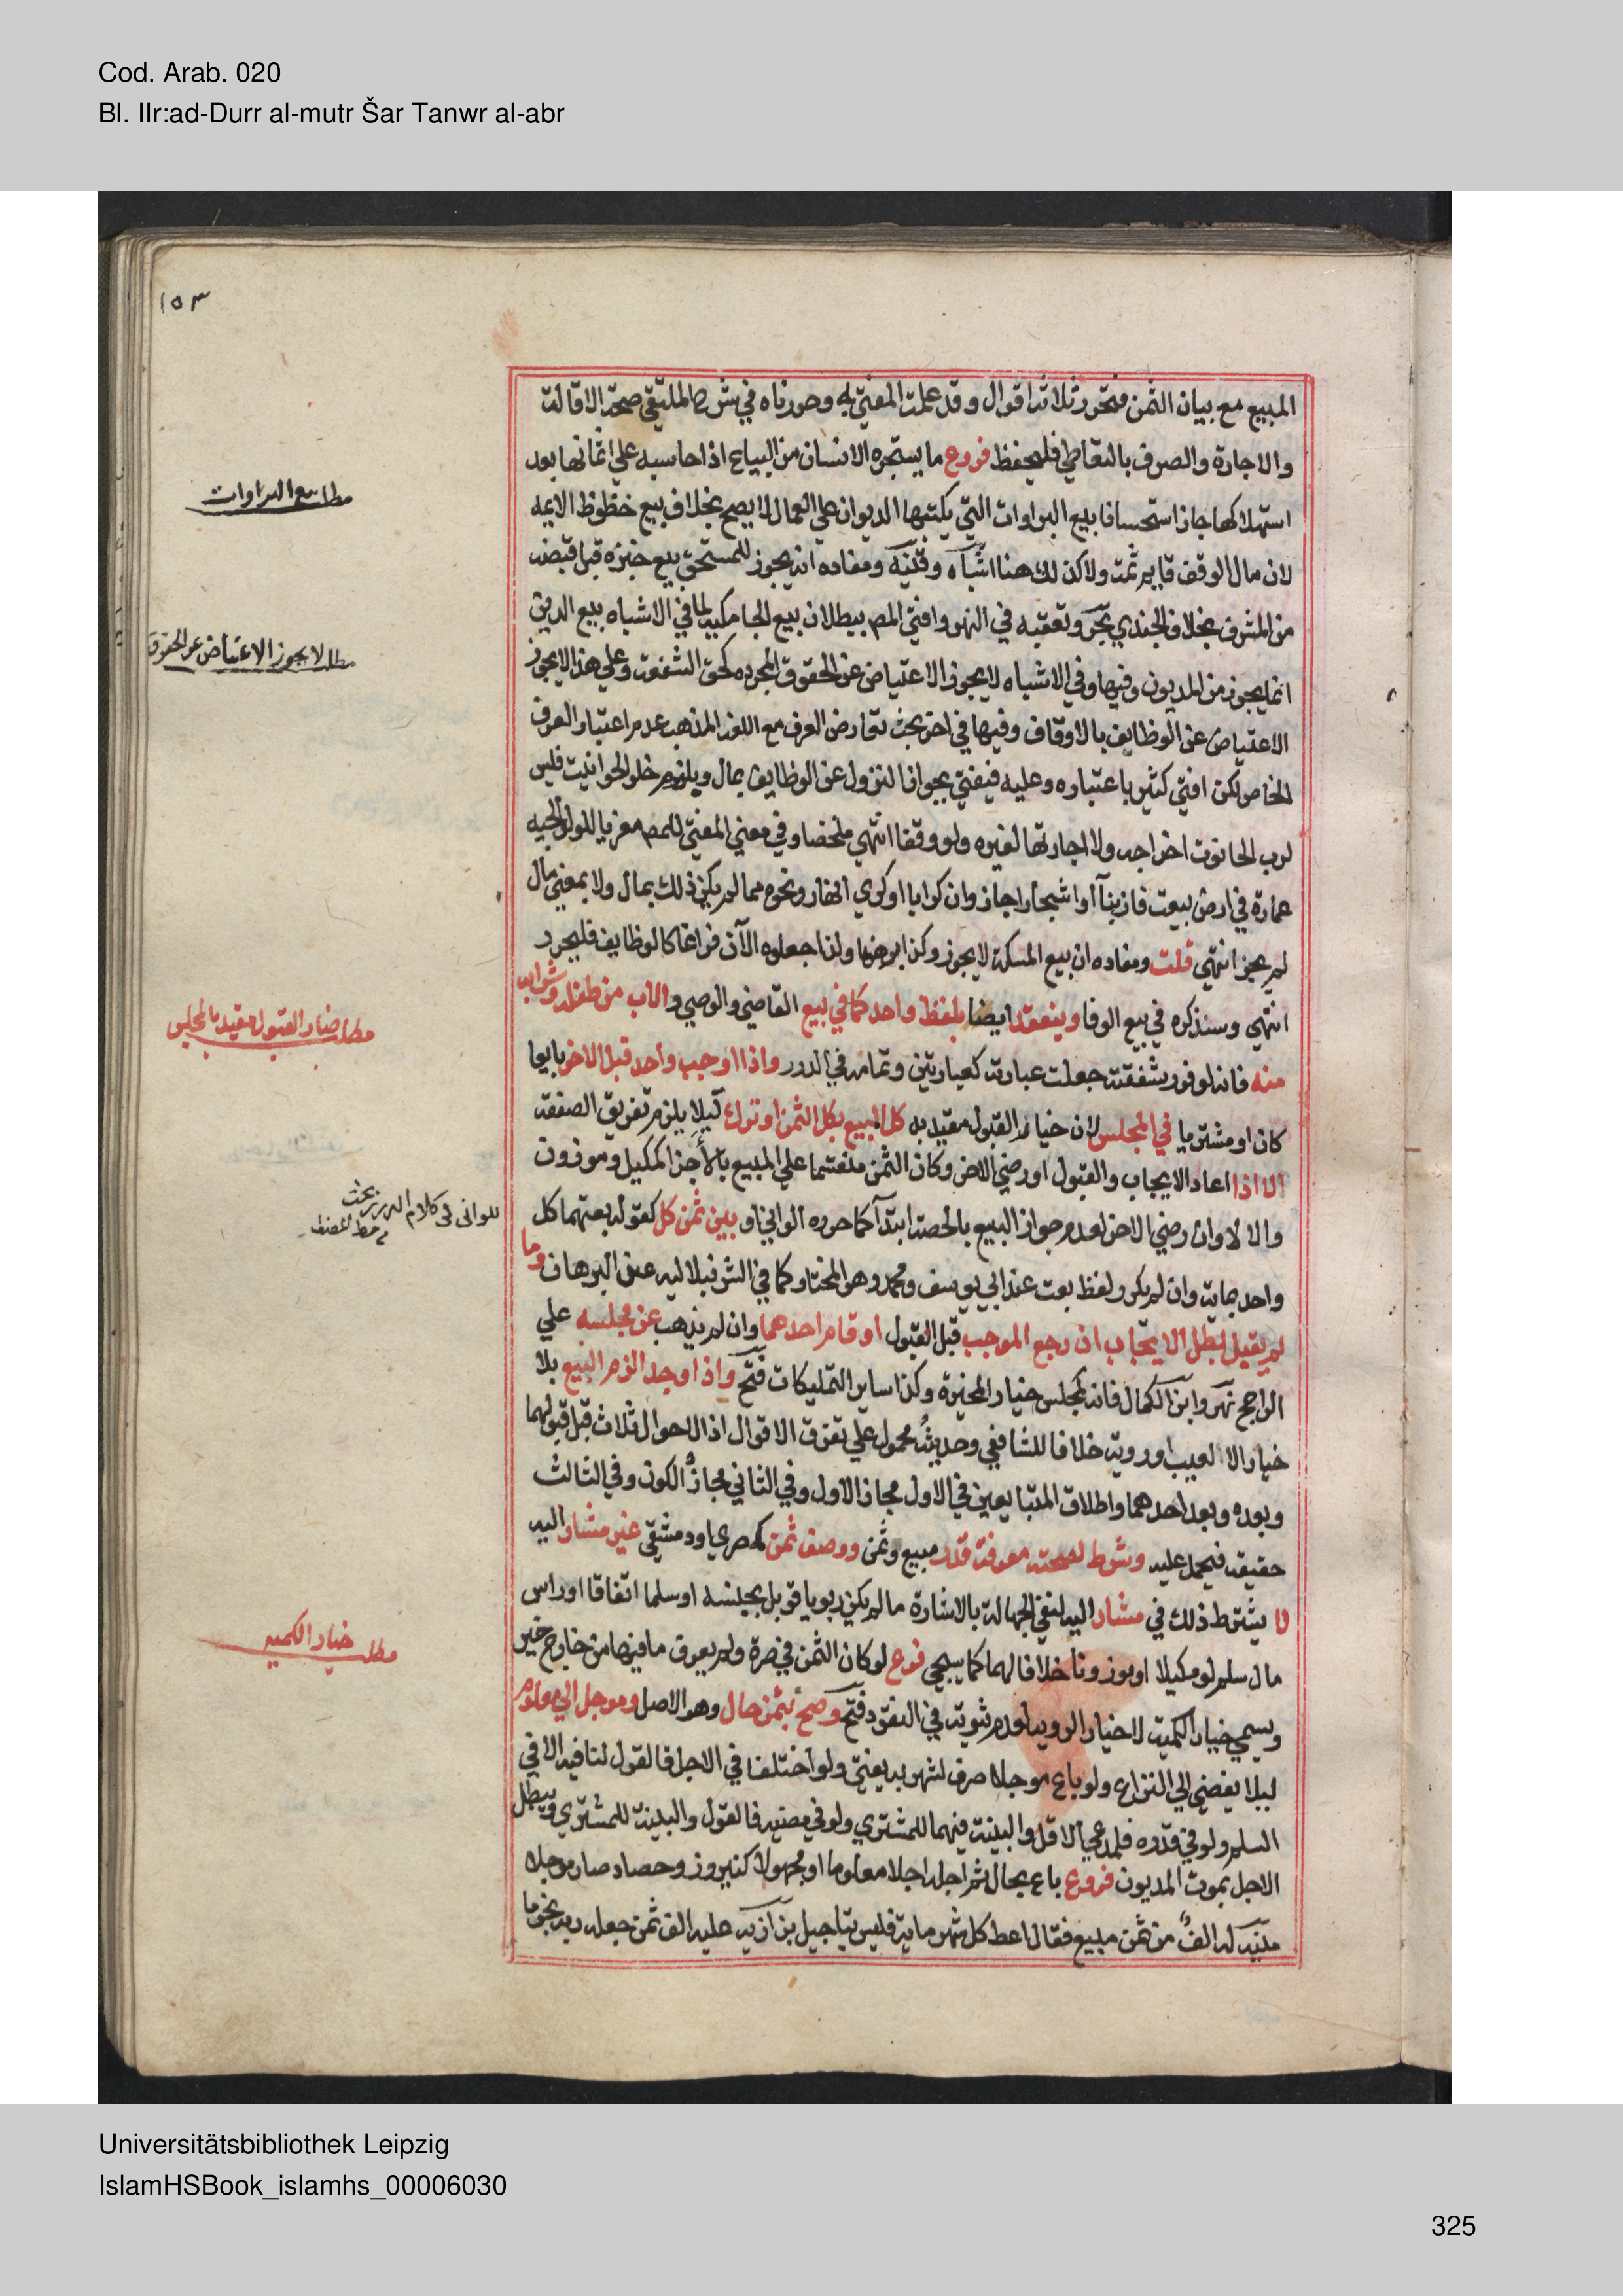 Cod. Arab. 020
Bl. IIr:ad-Durr al-mutr Šar Tanwr al-abr
١٥٣
المبيع مع بيان الثمن فتحرر ثلاثة اقوال وقد علمت المفتي به وحررناه في شرح الملتقي صحة الاقالة
والاجارة والصرف بالتعاطي فليحفظ فروع ما يستجره الانسان من البياع اذا حاسبه علي اثمانها بعد
استهلاكها جاز استحسانا بيع البراوات التي يكتبها الديوان علي العمال لا يصح بخلاف بيع حظوظ الايمه
لان مال الوقف قايم ثمت ولا كذلك هنا اشباه وقنيه ومفاده انه يجوز للمستحق بيع خبزه قبل قبضه
من المشرف بخلاف الجندي بحر وتعقبه في النهر وافتي المص ببطلان بيع الجامكيه لما في الاشباه بيع الدين
انما يجوز من المديون وفيها وفي الاشباه لا يجوز الاعتياض عن الحقوق المجرده كحق الشفعة وعلي هذا لا يجوز
الاعتياض عن الوظايف بالاوقاف وفيها في اخر بحث تعارض العرف مع اللغة المذهب عدم اعتبار العرف
الخاص لكن افتي كثير باعتباره وعليه فيفتي بجواز النزول عن الوظايف بمال وبلزوم خلو الحوانيت فليس
لرب الحانوت اخراجه ولا اجارتها لغيره ولو وقفا انتهي ملخصا وفي معين المفتي للمص معزيا للولوالجيه
عمارة في ارض بيعت فان بنآ او اشجارا جاز وان كرابا او كري انهار ونحوه مما لم يكن ذلك بمال ولا بمعني مال
لم يجز انتهي قلت ومفاده ان بيع المسكة لا يجوز وكذا رهنها ولذا جعلوه الآن فراغا كالوظايف فليحرر
انتهي وسنذكره في بيع الوفا وينعقد ايضا بلفظ واحد كما في بيع القاضي والوصي والاب من طفله وشرايه
منه فانه لوفور شفقته جعلت عبارته كعبارتين وتمامه في الدرر واذا اوجب واحد قبل الاخر بايعا
كان او مشتريا في المجلس لان خيار القبول مقيد به كل المبيع بكل الثمن او ترك ليلا يلزم تفريق الصفقة
الا اذا اعاد الايجاب والقبول او رضي الاخر وكان الثمن منقسما علي المبيع بالأجزا كمكيل وموزون
والا لا وان رضي الاخر لعدم جواز البيع بالحصة ابتدآ كما حرره الواني او بين ثمن كل كقوله بعتهما كل
واحد بماية وان لم يكرر لفظ بعت عند ابي يوسف ومحمد وهو المختار كما في الشرنبلاليه عن البرهان وما
لم يقبل بطل الايجاب ان رجع الموجب قبل القبول او قام احدهما وان لم يذهب عن مجلسه علي
الراجح نهر وابن الكمال فانه كمجلس خيار المخيرة وكذا ساير التمليكات فتح واذا وجدا لزم البيع بلا
خيار الا لعيب او روية خلافا للشافعي وحديثه محمول علي تفرق الاقوال اذ الاحوال ثلاث قبل قبولهما
وبعده وبعد احدهما واطلاق المتبايعين في الاول مجاز الاول وفي الثاني مجاز الكون وفي الثالث
حقيقة فيحمل عليه وشرط لصحته معرفة قدر مبيع وثمن ووصف ثمن كمصري او دمشقي غير مشار اليه
لا يشترط ذلك في مشار اليه لنفي الجهالة بالاشارة ما لم يكن ربويا قوبل بجنسه او سلما اتفاقا او راس
مال سلم لو مكيلا او موزونا خلافا لهما كما سيجي فرع لو كان الثمن في صرة ولم يعرف ما فيها من خارج خير
ويسمي خيار الكمية لا خيار الروية لعدم ثبوته في النقود فتح وصح بثمن حال وهو الاصل وموجل الي معلوم
ليلا يفضي الي النزاع ولو باع موجلا صرف لشهر به يفتي ولو اختلفا في الاجل فالقول لنافيه الا في
السلم ولو في قدره فلمدعي الاقل والبينة فيهما للمشتري ولو في مضيه فالقول والبينة للمشتري ويبطل
الاجل بموت المديون فروع باع بحال ثم اجله اجلا معلوما او مجهولا كنيروز وحصاد صار موجلا
منية له الف من ثمن مبيع فقال اعط كل شهر ماية فليس بتاجيل بزازيه عليه الف ثمن جعله ربه نجوما
مطلب بيع البراوات
مطلب لا يجوز الاعتياض عن الحقوق
مطلب خيار القبول مقيد بالمجلس
للواني في كلام الدرر بحث
خط المصنف
مطلب خيار الكميه
Universitätsbibliothek Leipzig
IslamHSBook_islamhs_00006030
325